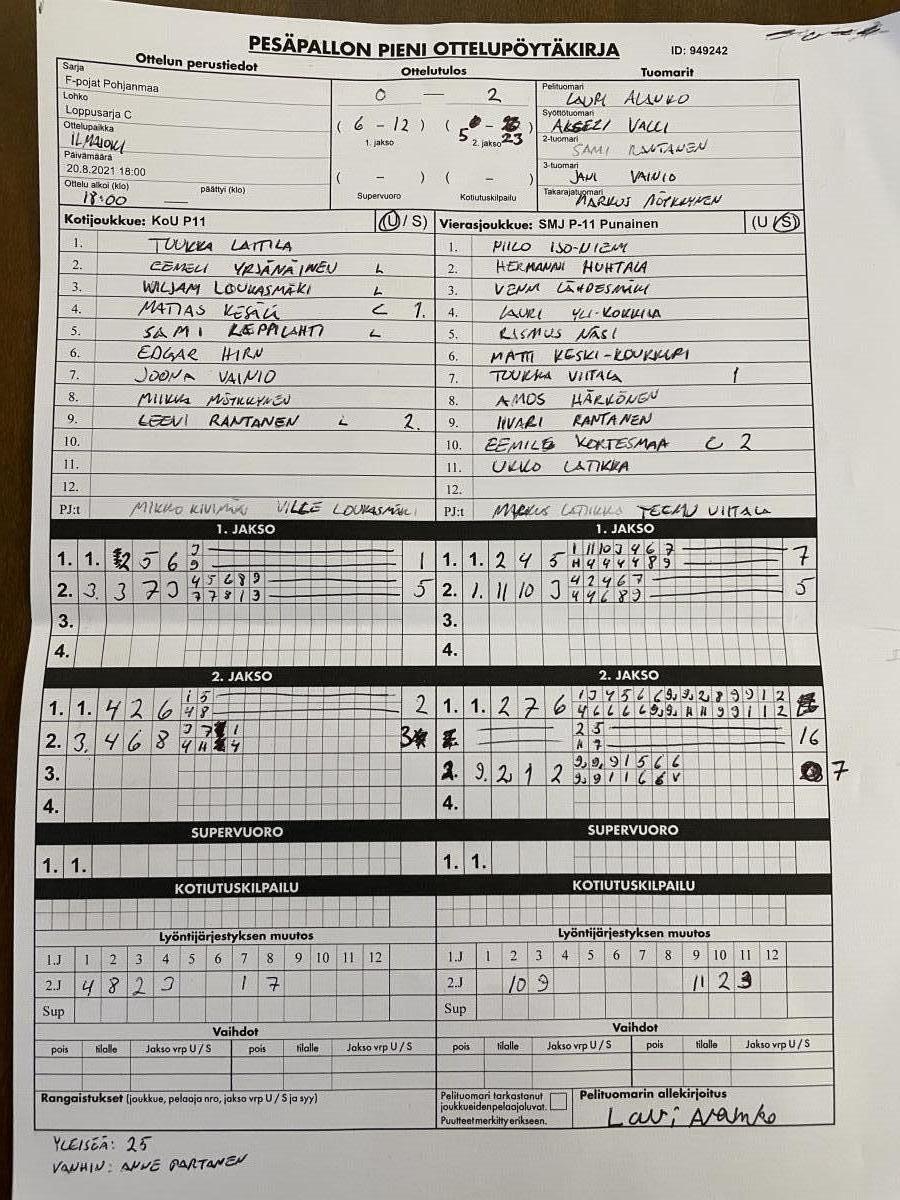 PESÄPALLON PIENI OTTELUPÖYTÄKIRJA
ID: 949242
Ottelun perustiedot
Ottelutulos
Tuomarit
Sarja
F-pojat Pohjanmaa
Lohko
Loppusarja C
Ottelupaikka
ILMAJOKI
Päivämäärä
20.8.2021 18:00
Ottelu alkoi (klo) päättyi (klo)
18:00 —
0 — 2
( 6 - 12 ) ( 5 - 23 )
1. jakso 2. jakso
( - ) ( - )
Supervuoro Kotiutuskilpailu
Pelituomari
LAURI ALANKO
Syöttötuomari
AKSELI VALLI
2-tuomari
SAMI RANTANEN
3-tuomari
JANI VAINIO
Takarajatuomari
MARKUS MÖTKKYNEN
Kotijoukkue: KoU P11 (U / S)
1. TUUKKA LAITILA
2. EEMELI YRJÄNÄINEN L
3. WILJAM LOUKASMÄKI L
4. MATIAS C 1.
5. SAMI L
6. EDGAR HIRN
7. JOONA VAINIO
8. MIIKKA MÖTKKYNEN
9. LEEVI RANTANEN L 2.
10.
11.
12.
PJ:t MIKKO KIVIMÄKI VILLE LOUKASMÄKI
Vierasjoukkue: SMJ P-11 Punainen (U / S)
1. PIILO ISO-NIEMI
2. HERMANNI HUHTALA
3. LÄHDESMÄKI
4. LAURI YLI-KOKKILA
5. RASMUS NÄSI
6. MATTI KESKI-KOUKKARI
7. TUUKKA VIITALA 1
8. AMOS HÄRKÖNEN
9. IIVARI RANTANEN
10. EEMIL KORTESMAA C 2
11. UKKO LATIKKA
12.
PJ:t MARKUS LATIKKA TEEMU VIITALA
1. JAKSO
1. 1. 2 5 6 1
3
9
2. 3. 3 7 3 5
4 5 6 8 9
7 7 8 1 3
3.
4.
1. JAKSO
1. 1. 2 4 5 7
1 11 10 3 4 6 7
H 4 4 4 4 8 9
2. 1. 11 10 3 5
4 2 4 6 7
4 4 6 8 9
3.
4.
2. JAKSO
1. 1. 4 2 6 2
1 5
4 8
2. 3. 4 6 8 3
3 7 1
4 H 4
3.
4.
2. JAKSO
1. 1. 2 7 6
2 5 16
H 7
2. 9. 2 1 2 7
4.
SUPERVUORO
1. 1.
SUPERVUORO
1. 1.
KOTIUTUSKILPAILU
KOTIUTUSKILPAILU
Lyöntijärjestyksen muutos
1.J 1 2 3 4 5 6 7 8 9 10 11 12
2.J 4 8 2 3 1 7
Sup
Lyöntijärjestyksen muutos
1.J 1 2 3 4 5 6 7 8 9 10 11 12
2.J 10 9 11 2 3
Sup
Vaihdot
pois tilalle Jakso vrp U / S pois tilalle Jakso vrp U / S
Vaihdot
pois tilalle Jakso vrp U / S pois tilalle Jakso vrp U / S
Rangaistukset (joukkue, pelaaja nro, jakso vrp U / S ja syy)
Pelituomari tarkastanut
joukkueiden pelaajaluvat.
Puutteet merkitty erikseen.
Pelituomarin allekirjoitus
Lauri Alanko
YLEISÖÄ: 25
VANHIN: ANNE PARTANEN